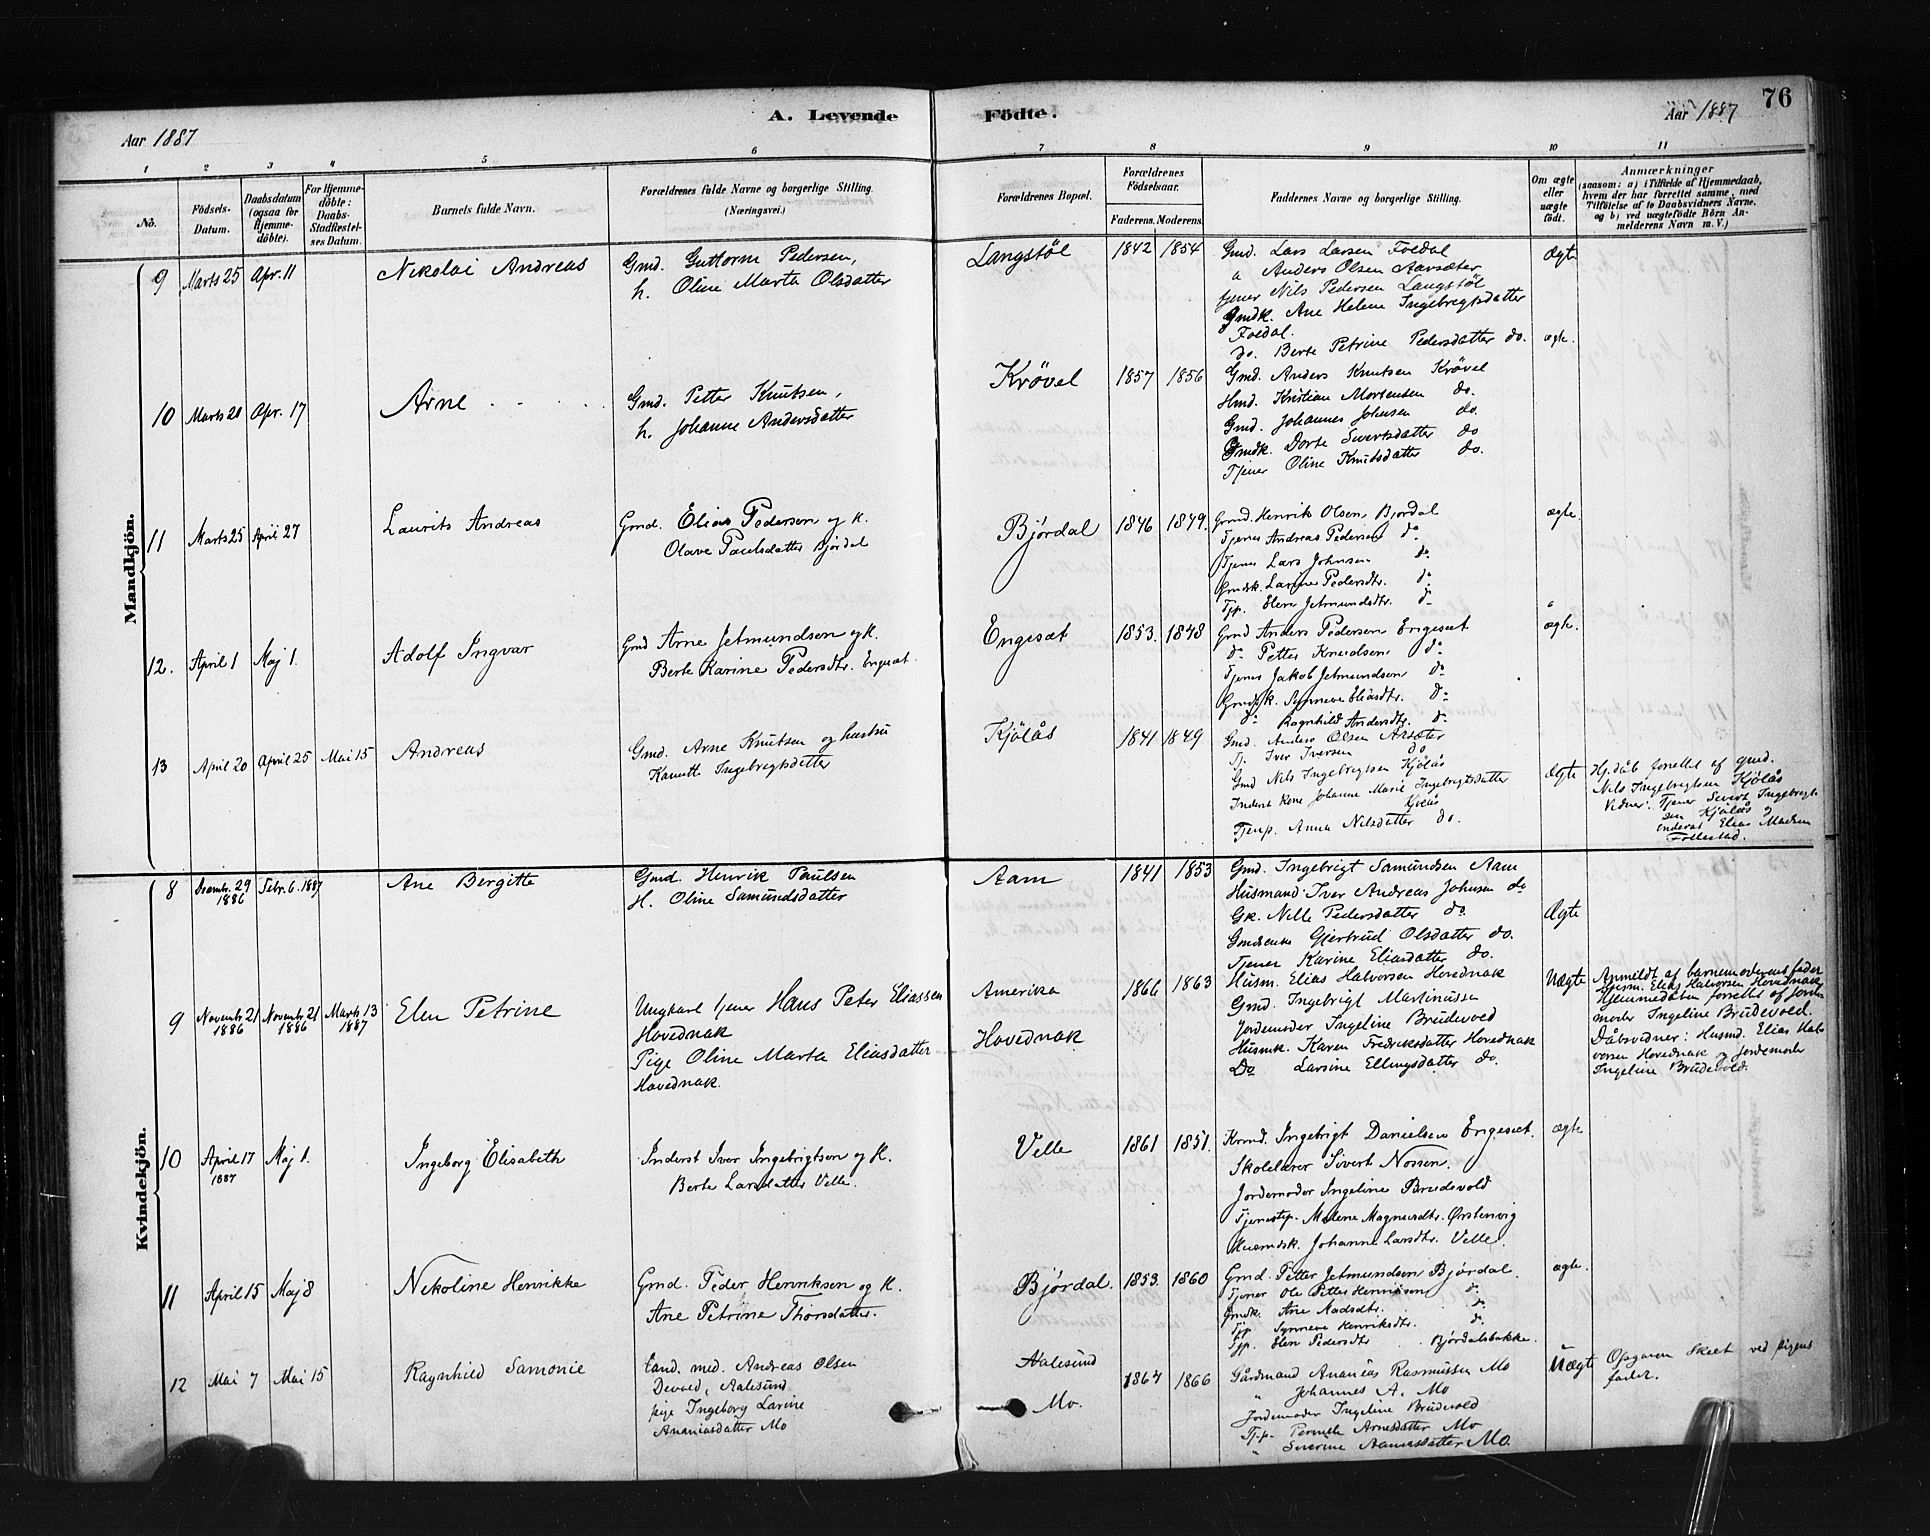 76
Aar 1887
A. Levende Födte.
Aar 1887
1 2 3 4 5 6 7 8 9 10 11
No.
Födsels-Datum.
Daabsdatum (ogsaa for Hjemme-döbte).
For Hjemme-döbte: Daabs-Stadfæstel-ses Datum.
Barnets fulde Navn.
Forældrenes fulde Navne og borgerlige Stilling. (Næringsvei.)
Forældrenes Bopæl.
Forældrenes Födselsaar.
Faderens. Moderens.
Faddernes Navne og borgerlige Stilling.
Om ægte eller uægte födt.
Anmærkninger (saasom: a) i Tilfælde af Hjemmedaab, hvem der har forrettet samme, med Tilföielse af to Daabsvidners Navne, og b) ved uægtefödte Börn An-melderens Navn m. V.)
Mandkjön.
9 Marts 25 Apr. 11 Nikolai Andreas
Gmd. Guttorm Pedersen,
h. Oline Marta Olsdatter
Langstöl 1842 1854
Gmd. Lars Larsen Foldal
" Anders Olsen Aarsæter
tjener Nils Pedersen Langstöl
Gmdk. Ane Helene Ingebrigtsdatter
Foldal.
do. Berte Petrine Pedersdatter do.
Ægte
10 Marts 21 Apr. 17 Arne
Gmd. Petter Knutsen,
h. Johanne Andersdatter
Krøvel 1857 1856
Gmd. Anders Knutsen Krövel
Hmd. Kristian Mortensen do.
Gmd. Johannes Johnsen do.
Gmdk. Dorte Sivertsdatter do
Tjener Oline Knutsdatter do.
ægte.
11 Marts 25 April 27 Laurits Andreas
Gmd. Elias Pedersen og K.
Olave Paulsdatter Bjørdal
Bjørdal 1846 1849.
Grmd. Henrik Olsen Bjordal
Tjener Andreas Pedersen do
Tjener Lars Johnsen do
Gmdsk. Larine Pedersdtr. do
Tjp. Elen Jetmundsdtr. do
ægte.
12. April 1 Maj 1. Adolf Ingvar
Gmd Arne Jetmundsen og K.
Berte Karine Pedersdtr. Engesæt.
Engesæt 1853. 1848
Grmd Anders Pedersen Engeset
do Petter Knudsen do
Tjener Jakob Jetmundsen do
Gmdsk. Synneve Eliasdtr. do
do Ragnhild Andersdtr. do
ægte.
13 April 20 April 25 Mai 15 Andreas
Gmd. Arne Knutsen og hustru
Kanutte Ingebregtsdatter
Kjölås 1841 1849
Gmd. Anders Olsen Arsæter
Tj. Iver Iversen do
Gmd Nils Ingebregtsen Kjölås
Inderst kone Johanne Marie Ingebregtsdatter
Kjölås
Tjenp. Anna Nilsdatter do.
Ægte
Hj.dåb forrettet af gmd.
Nils Ingebregtsen Kjölås
Vidner: Tjener Sivert Ingebregt-
sen Kjölås og
inderst Elias Madsen
Follestad.
Kvindekjön.
8 Decembr. 29 1886 Febr. 6. 1887 Ane Bergitte
Gmd. Henrik Paulsen
H. Oline Samundsdatter
Aam 1841 1853
Gmd. Ingebrigt Samundsen Aam
Husmand Iver Andreas Johnsen do
Gk. Nille Pedersdatter do.
Gjertrud Olsdatter do.
Tjener Karine Eliasdatter do.
Ægte
9 Novembr. 21 1886 Novembr. 21 1886 Marts 13 1887 Elen Petrine
Ungkarl tjener Hans Peter Eliassen
Hovednak
Pige Oline Marta Eliasdatter
Hovednak
Amerika
Hovednak
1866 1863
Husm. Elias Halvorsen Hovednak
Gmd. Ingebrigt Martinussen
Jordemoder Ingeline Brudevold
Husmk. Karen Fredriksdatter Hovednak
Do Larsine Ellingsdatter do.
Uægte
Anmeldt af barnemoderens fader
Husm. Elias Halvorsen Hovednak
Hjemmedåben forrettet af Jorde-
moder Ingeline Brudevold.
Dåbsvidner: Husmd. Elias Hal-
vorsen Hovednak og Jordemoder
Ingeline Brudevold.
10 April 17 1887 Maj 1. Ingeborg Elisabeth
Inderst Iver Ingebrigtsen og K.
Berte Larsdatter Velle.
Velle 1861 1851.
Krmd. Ingebrigt Danielsen Engeset.
Skolelærer Sivert Nossen.
Jordemoder Ingeline Brudevold
Tjenestep. Malene Magnusdtr. Ørstenvig
Husmdsk. Johanne Larsdtr. Velle.
ægte
11 April 15 Maj 8 Nikoline Henrikke
Grmd. Peder Henriksen og K.
Ane Petrine Thorsdatter.
Bjørdal. 1853. 1860
Grmd. Petter Jetmundsen Bjørdal.
Tjener Ole Petter Henriksen do
Gmdk. Ane Aadsdtr. do
Tjp. Synneve Henriksdtr. do
Tjp. Elen Pedersdtr Björdalsbakke.
ægte.
12 Mai 7 Mai 15 Ragnhild Samonie
Cand. med. Andreas Olsen
Devold, Aalesund
pige Ingeborg Larine
Ananiasdatter Mo
Aalesund
Mo.
1864 1866
Gårdmand Ananias Rasmussen Mo
" Johannes A. Mo
Jordemoder Ingeline Brudevold
Tj.p. Pernille Arnesdatter Mo
" Severine Ananiasdatter Mo.
Uægte
Opgaven skeet ved pigens
fader.